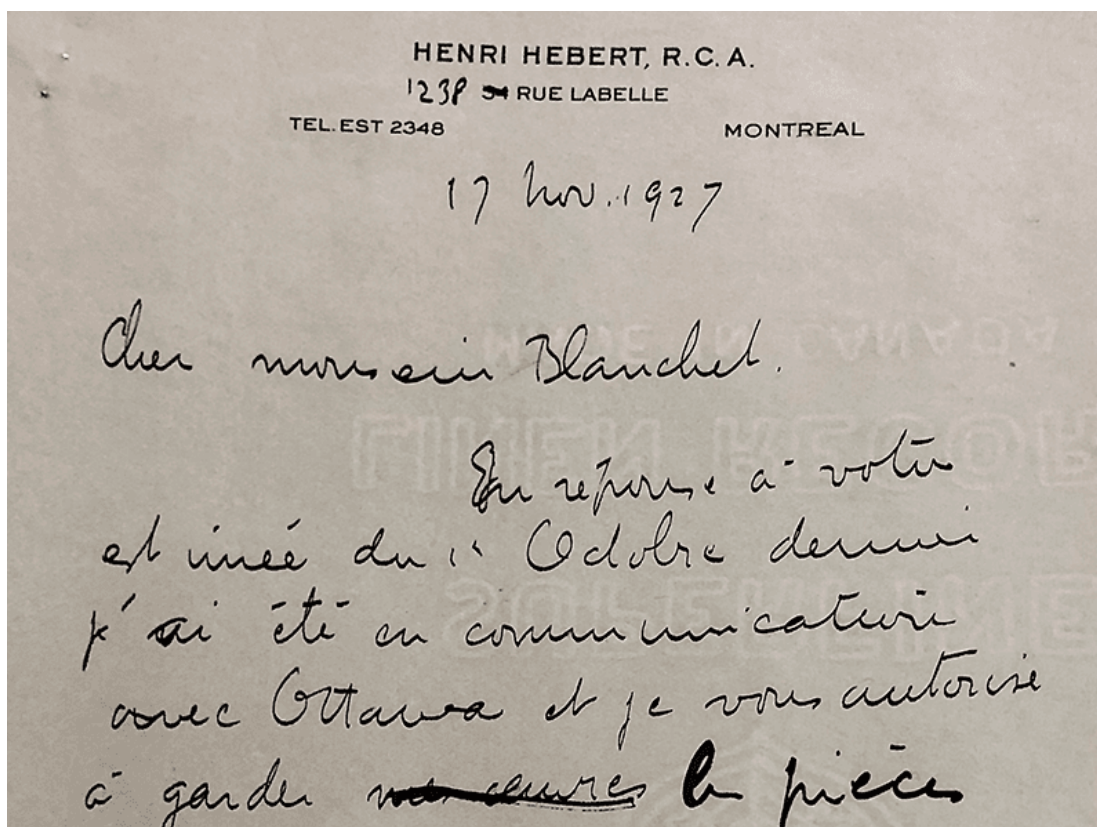 HENRI HEBERT, R.C.A.
1238 RUE LABELLE
TEL. EST 2348 MONTREAL
17 Nov. 1927
Cher monsieur Blanchet.
En réponse à votre
estimée du 1er Octobre dernier
j'ai été en communication
avec Ottawa et je vous autorise
à garder nos œuvres les pièces
MADE IN CANADA
LINEN RECOR
SUPERFINE